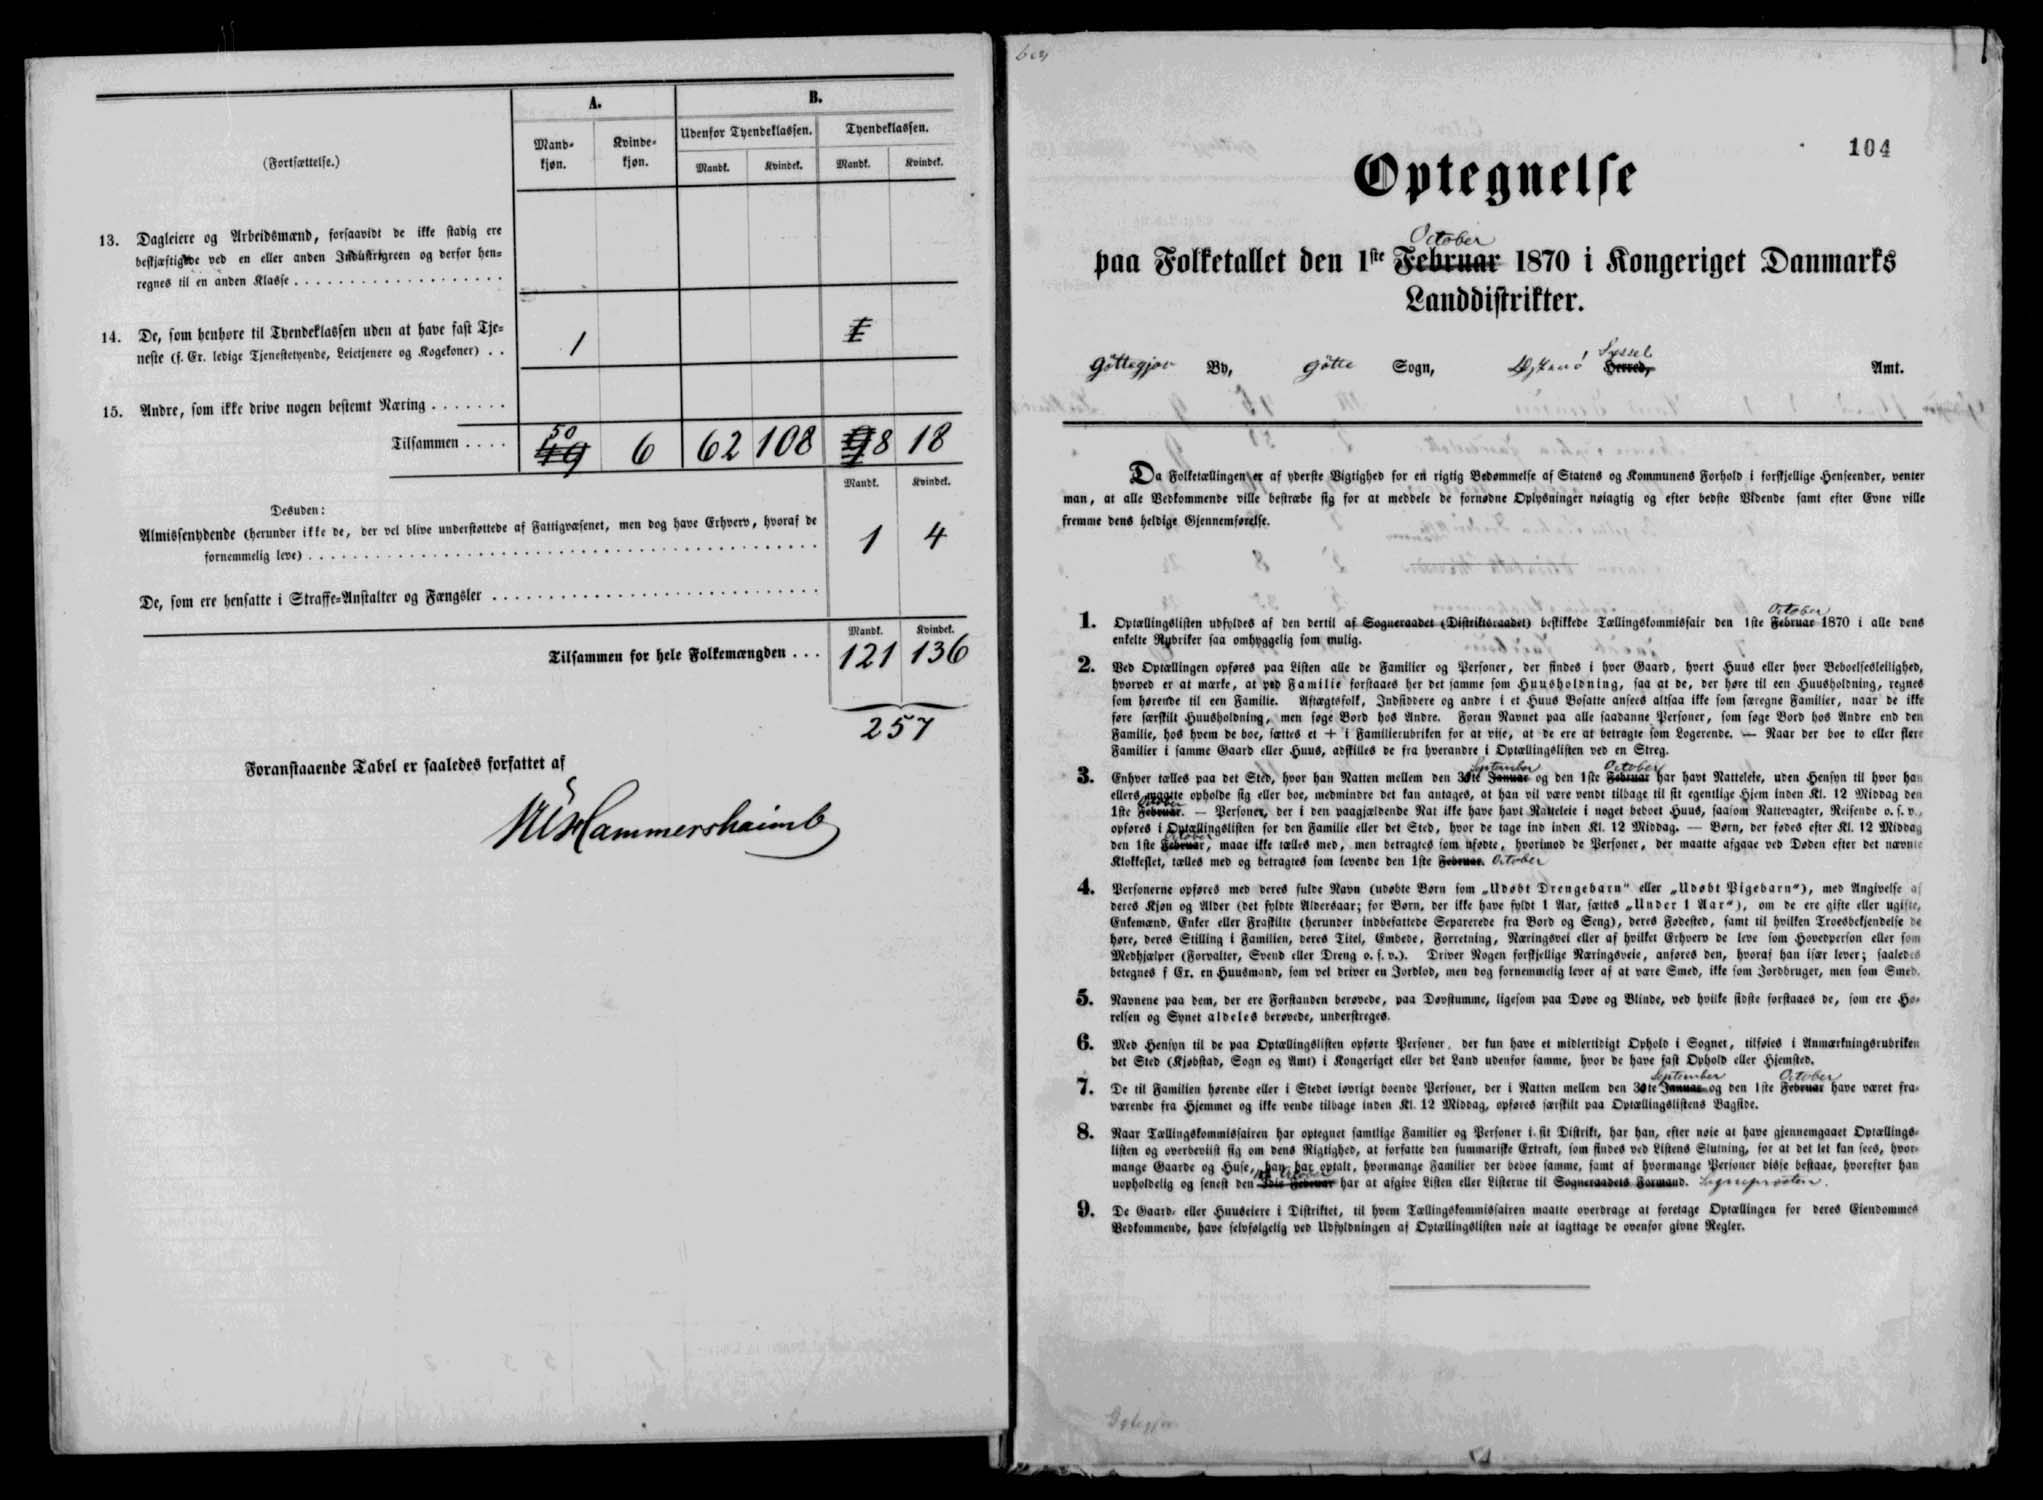 A.
B.
(Fortsættelse.)
Mandkjøn.
Kvindekjøn.
Udenfor Tyendeklassen.
Tyendeklassen.
Mandk.
Kvindek.
Mandk.
Kvindek.
13. Dagleiere og Arbeidsmænd, forsaavidt de ikke stadig ere
beskjæftigede ved en eller anden Industrigreen og derfor hen-
regnes til en anden Klasse . . . .
14. De, som henhøre til Tyendeklassen uden at have fast Tje-
neste (f. Ex. ledige Tjenestetyende, Leietjenere og Kogekoner) . .
1
1
15. Andre, som ikke drive nogen bestemt Næring . . . . . . .
Tilsammen . . . .
50
49 6 62 108 9 8 18
Mandk. Kvindek.
Desuden:
Almissenydende (herunder ikke de, der vel blive understøttede af Fattigvæsenet, men dog have Erhverv, hvoraf de
fornemmelig leve) . . . . 1 4
De, som ere hensatte i Straffe-Anstalter og Fængsler . . . .
Mandk. Kvindek.
Tilsammen for hele Folkemængden . . . 121 136
257
Foranstaaende Tabel er saaledes forfattet af
Hammershaimb
104
Optegnelse
October
paa Folketallet den 1ste Februar 1870 i Kongeriget Danmarks
Landdistrikter.
Syssel
Göttegjov By, Götte Sogn, Herred, Amt.
Da Folketællingen er af yderste Vigtighed for en rigtig Bedømmelse af Statens og Kommunens Forhold i forskjellige Henseender, venter
man, at alle Vedkommende ville bestræbe sig for at meddele de fornødne Oplysninger nøiagtig og efter bedste Vidende samt efter Evne ville
fremme dens heldige Gjennemførelse.
October
1. Optællingslisten udfyldes af den dertil af Sogneraadet (Distriktsraadet) beskikkede Tællingskommissair den 1ste Februar 1870 i alle dens
enkelte Rubriker saa omhyggelig som mulig.
2. Ved Optællingen opføres paa Listen alle de Familier og Personer, der findes i hver Gaard, hvert Huus eller hver Beboelsesleilighed,
hvorved er at mærke, at ved Familie forstaaes her det samme som Huusholdning, saa at de, der høre til een Huusholdning, regnes
som hørende til een Familie. Aftægtsfolk, Indsiddere og andre i et Huus Bosatte ansees altsaa ikke som særegne Familier, naar de ikke
føre særskilt Huusholdning, men søge Bord hos Andre. Foran Navnet paa alle saadanne Personer, som søge Bord hos Andre end den
Familie, hos hvem de boe, sættes et + i Familierubriken for at vise, at de ere at betragte som Logerende. — Naar der boe to eller flere
Familier i samme Gaard eller Huus, adskilles de fra hverandre i Optællingslisten ved en Streg.
September October
3. Enhver tælles paa det Sted, hvor han Natten mellem den 30te Januar og den 1ste Februar har havt Natteleie, uden Hensyn til hvor han
ellers maatte opholde sig eller boe, medmindre det kan antages, at han vil være vendt tilbage til sit egentlige Hjem inden Kl. 12 Middag den
October
1ste Februar. — Personer, der i den paagjældende Nat ikke have havt Natteleie i noget beboet Huus, saasom Nattevagter, Reisende o. s. v.,
opføres i Optællingslisten for den Familie eller det Sted, hvor de tage ind inden Kl. 12 Middag. — Børn, der fødes efter Kl. 12 Middag
October
den 1ste Februar, maae ikke tælles med, men betragtes som ufødte, hvorimod de Personer, der maatte afgaae ved Døden efter det nævnte
Klokkeslet, tælles med og betragtes som levende den 1ste Februar. October
4. Personerne opføres med deres fulde Navn (udøbte Børn som „Udøbt Drengebarn“ eller „Udøbt Pigebarn“), med Angivelse af
deres Kjøn og Alder (det fyldte Aldersaar; for Børn, der ikke have fyldt 1 Aar, sættes „Under 1 Aar“), om de ere gifte eller ugifte,
Enkemænd, Enker eller Fraskilte (herunder indbefattede Separerede fra Bord og Seng), deres Fødested, samt til hvilken Troesbekjendelse de
høre, deres Stilling i Familien, deres Titel, Embede, Forretning, Næringsvei eller af hvilket Erhverv de leve som Hovedperson eller som
Medhjælper (Forvalter, Svend eller Dreng o. s. v.). Driver Nogen forskjellige Næringsveie, anføres den, hvoraf han især lever; saaledes
betegnes f Ex. en Huusmand, som vel driver en Jordlod, men dog fornemmelig lever af at være Smed, ikke som Jordbruger, men som Smed.
5. Navnene paa dem, der ere Forstanden berøvede, paa Døvstumme, ligesom paa Døve og Blinde, ved hvilke sidste forstaaes de, som ere Hø-
relsen og Synet aldeles berøvede, understreges.
6. Med Hensyn til de paa Optællingslisten opførte Personer, der kun have et midlertidigt Ophold i Sognet, tilføies i Anmærkningsrubriken
det Sted (Kjøbstad, Sogn og Amt) i Kongeriget eller det Land udenfor samme, hvor de have fast Ophold eller Hjemsted.
September October
7. De til Familien hørende eller i Stedet iøvrigt boende Personer, der i Natten mellem den 30te Januar og den 1ste Februar have været fra-
værende fra Hjemmet og ikke vende tilbage inden Kl. 12 Middag, opføres særskilt paa Optællingslistens Bagside.
8. Naar Tællingskommissairen har optegnet samtlige Familier og Personer i sit Distrikt, har han, efter nøie at have gjennemgaaet Optællings-
listen og overbeviist sig om dens Rigtighed, at forfatte den summariske Extrakt, som findes ved Listens Slutning, for at det let kan sees, hvor-
mange Gaarde og Huse, han har optalt, hvormange Familier der beboe samme, samt af hvormange Personer disse bestaae, hvorefter han
uopholdelig og senest den Februar har at afgive Listen eller Listerne til Sogneraadets Formand. Sogneprästen.
9. De Gaard- eller Huuseiere i Distriktet, til hvem Tællingskommissairen maatte overdrage at foretage Optællingen for deres Eiendommes
Vedkommende, have selvfølgelig ved Udfyldningen af Optællingslisten nøie at iagttage de ovenfor givne Regler.